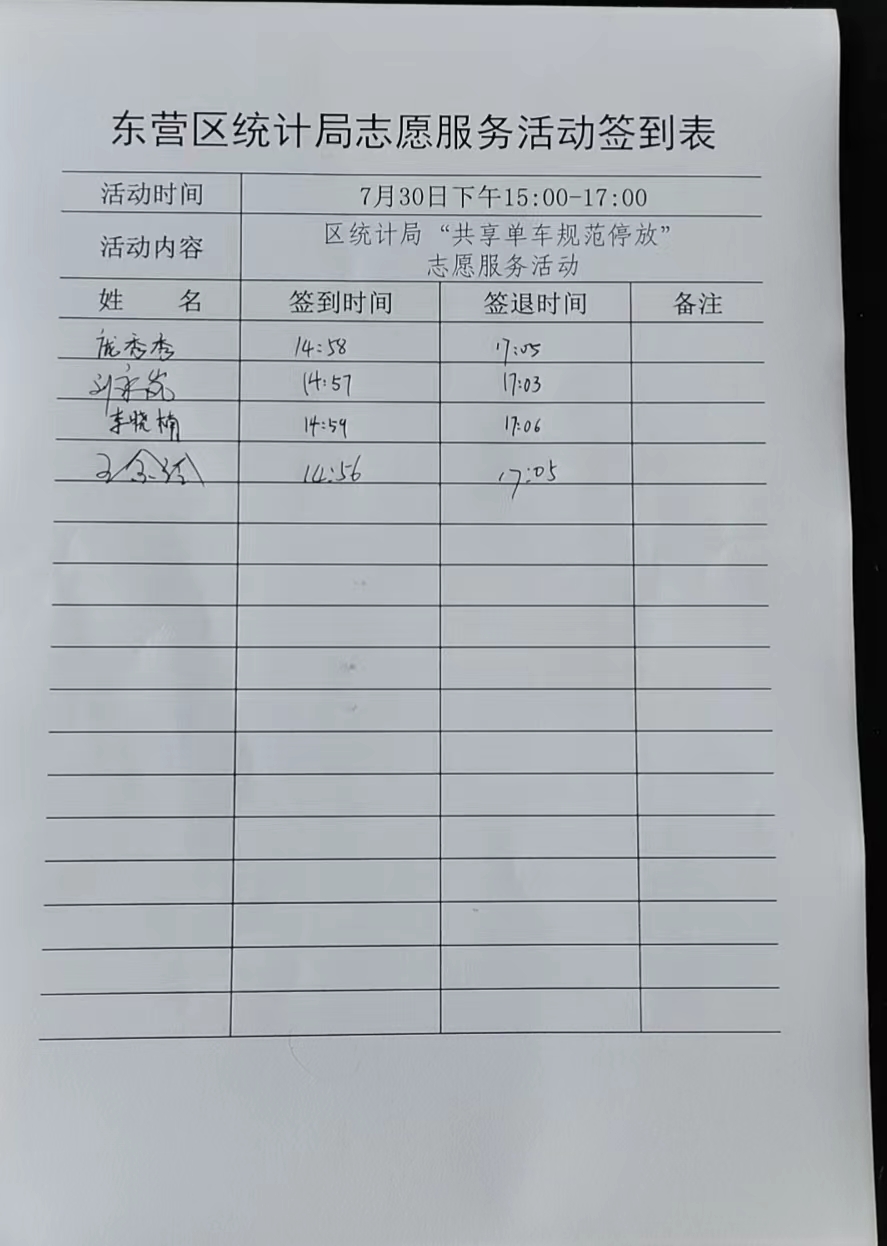 东营区统计局志愿服务活动签到表
活动时间 7月30日下午15:00-17:00
活动内容 区统计局“共享单车规范停放”
志愿服务活动
姓 名 签到时间 签退时间 备注
庞秀秀 14:58 17:05
14:57 17:03
李晓楠 14:59 17:06
14:56 17:05